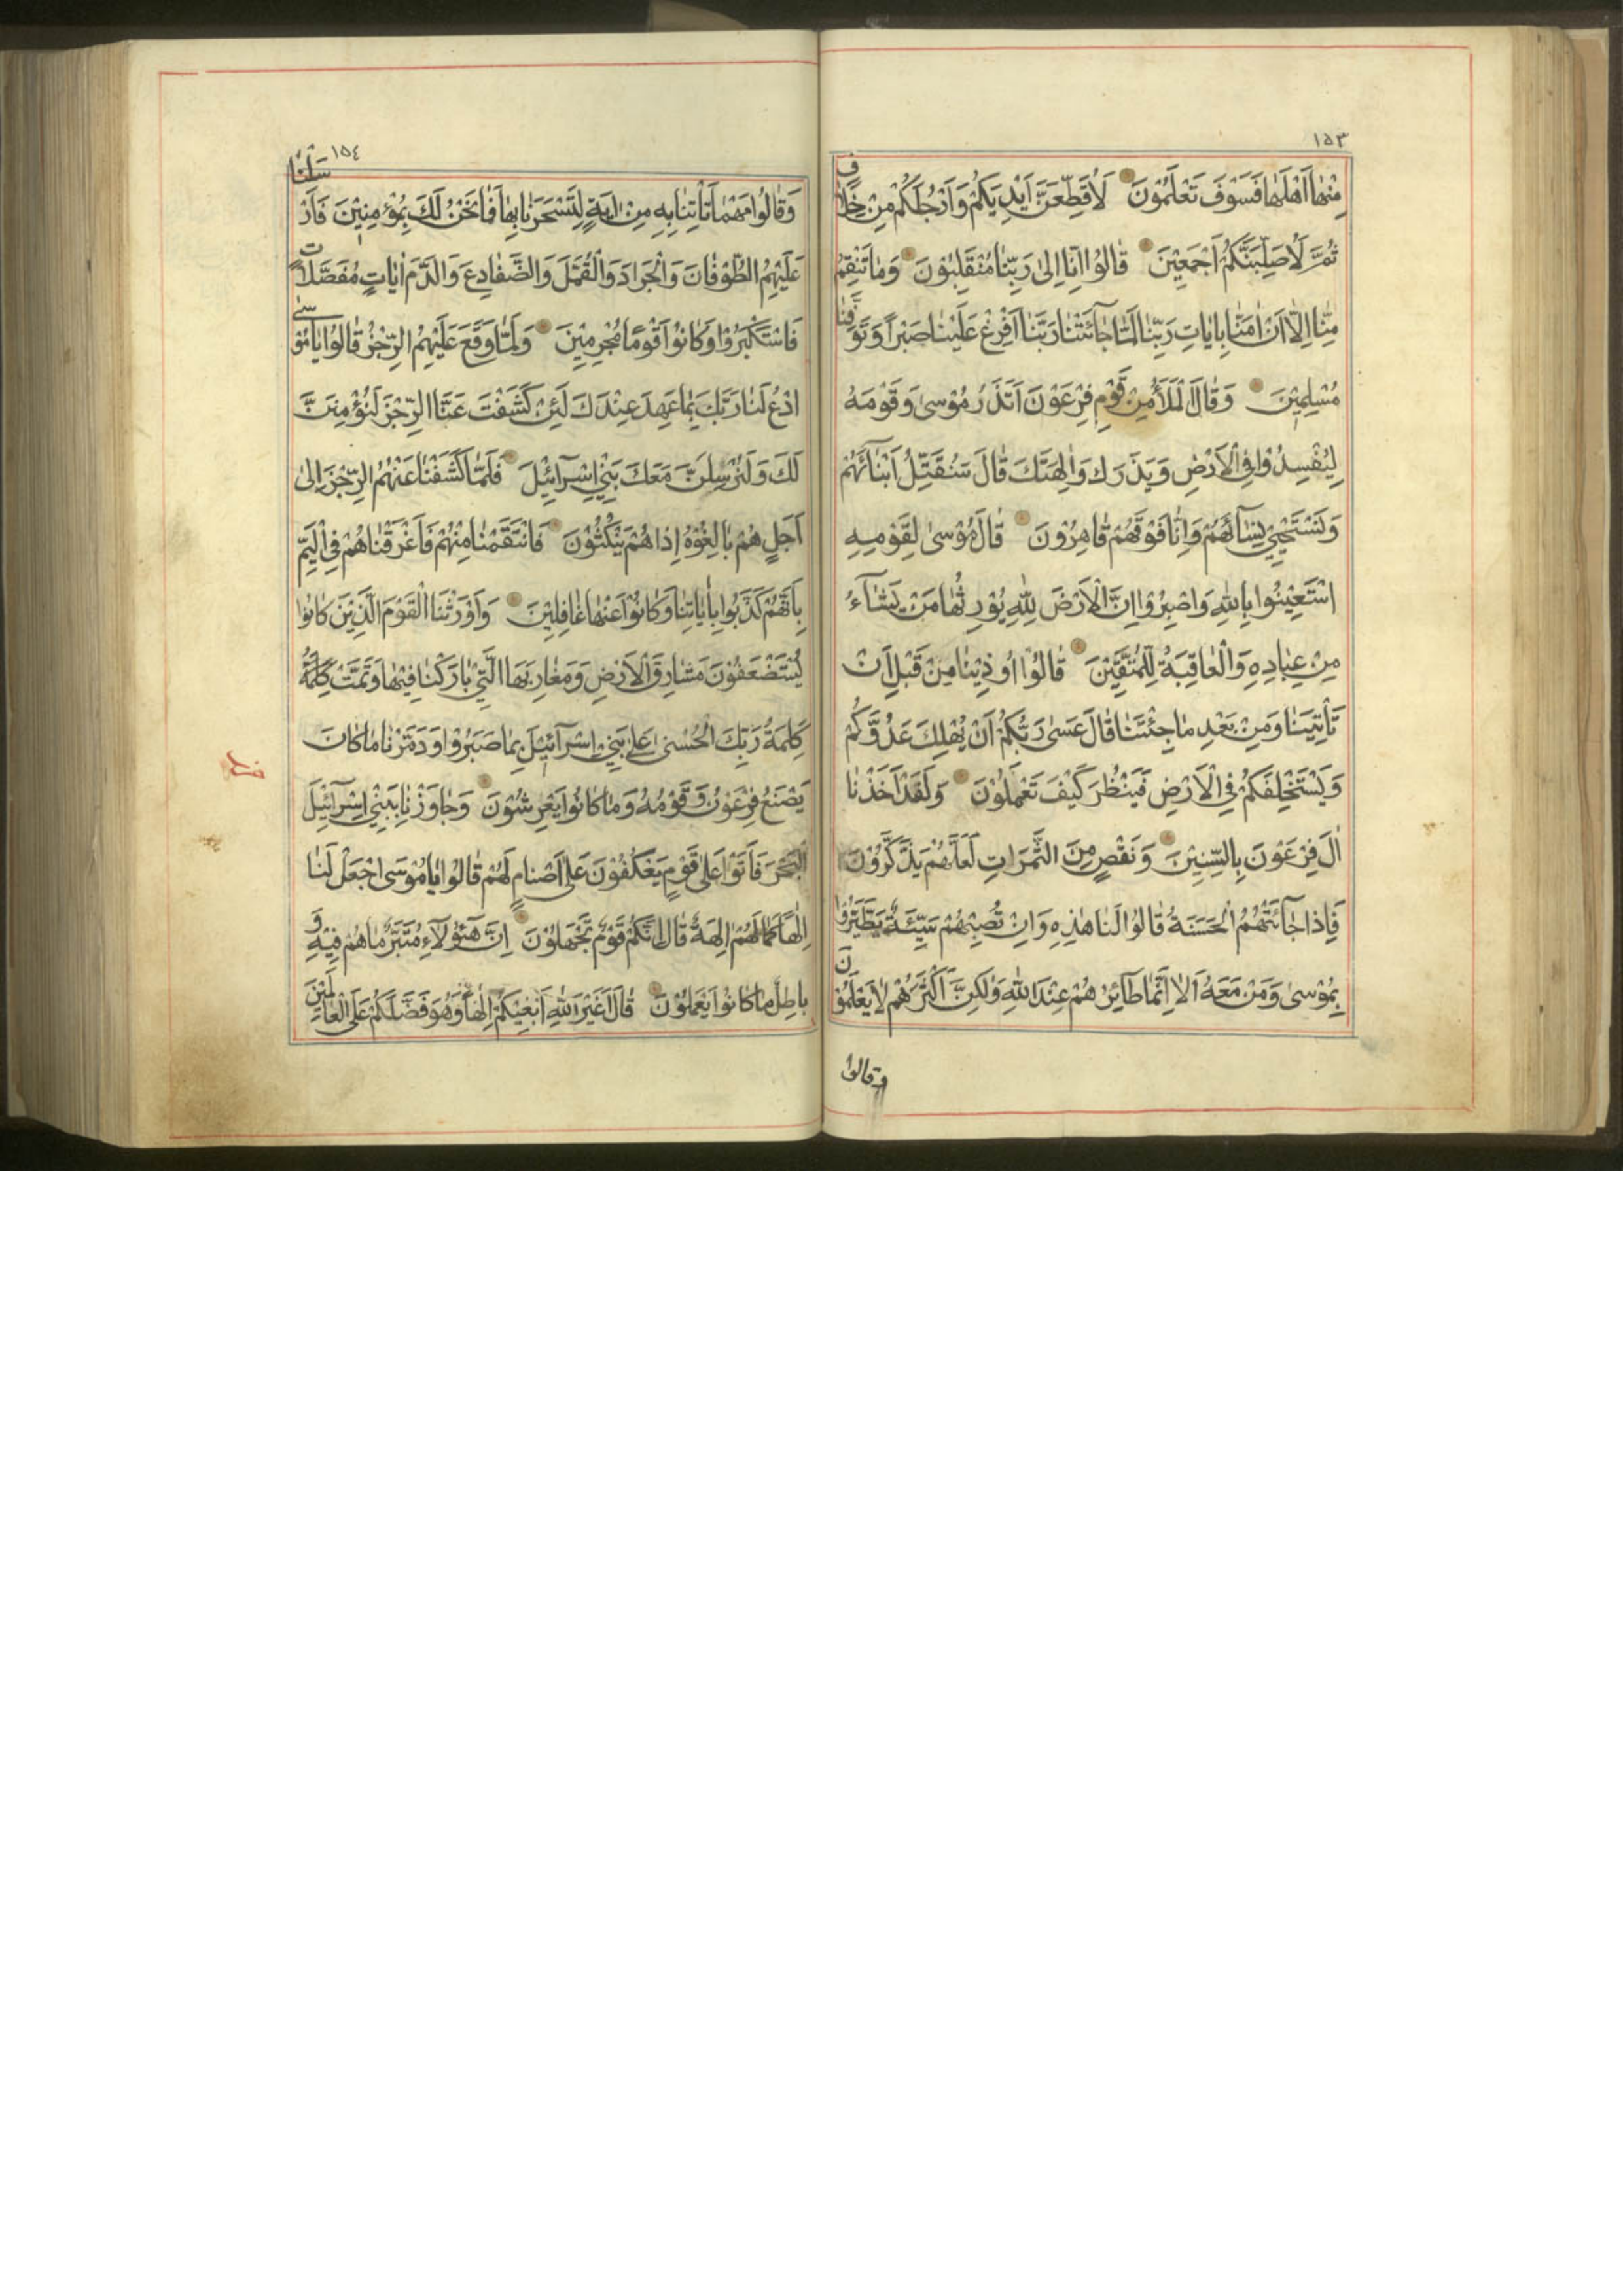 ١٥٣
مِنْهٰا اَهْلَهٰا فَسَوْفَ تَعْلَمُوْنَ لَاُقَطِّعَنَّ اَيْدِيَكُمْ وَاَرْجُلَكُمْ مِنْ خِلٰافٍ
ثُمَّ لَاُصَلِّبَنَّكُمْ اَجْمَعِيْنَ قٰالُوْا اِنّٰا اِلٰى رَبِّنٰا مُنْقَلِبُوْنَ وَمٰا تَنْقِمُ
مِنّٰا اِلّٰا اَنْ اٰمَنّٰا بِاٰيٰاتِ رَبِّنٰا لَمّٰا جٰٓائَتْنٰا رَبَّنٰا اَفْرِغْ عَلَيْنٰا صَبْراً وَتَوَفَّنٰا
مُسْلِمِيْنَ وَقٰالَ الْمَلَأُ مِنْ قَوْمِ فِرْعَوْنَ اَتَذَرُ مُوْسىٰ وَقَوْمَهُ
لِيُفْسِدُوْا فِي الْاَرْضِ وَيَذَرَكَ وَاٰلِهَتَكَ قٰالَ سَنُقَتِّلُ اَبْنٰٓائَهُمْ
وَنَسْتَحْيِيْ نِسٰٓائَهُمْ وَاِنّٰا فَوْقَهُمْ قٰاهِرُوْنَ قٰالَ مُوْسىٰ لِقَوْمِهِ
اسْتَعِيْنُوْا بِاللهِ وَاصْبِرُوْا اِنَّ الْاَرْضَ لِلّٰهِ يُوْرِثُهٰا مَنْ يَشٰٓاءُ
مِنْ عِبٰادِهِ وَالْعٰاقِبَةُ لِلْمُتَّقِيْنَ قٰالُوْا اُوْذِيْنٰا مِنْ قَبْلِ اَنْ
تَأْتِيَنٰا وَمِنْ بَعْدِ مٰا جِئْتَنٰا قٰالَ عَسىٰ رَبُّكُمْ اَنْ يُهْلِكَ عَدُوَّكُمْ
وَيَسْتَخْلِفَكُمْ فِي الْاَرْضِ فَيَنْظُرَ كَيْفَ تَعْمَلُوْنَ وَلَقَدْ اَخَذْنٰا
اٰلَ فِرْعَوْنَ بِالسِّنِيْنَ وَنَقْصٍ مِنَ الثَّمَرٰاتِ لَعَلَّهُمْ يَذَّكَّرُوْنَ
فَاِذٰا جٰٓائَتْهُمُ الْحَسَنَةُ قٰالُوْا لَنٰا هٰذِهِ وَاِنْ تُصِبْهُمْ سَيِّئَةٌ يَطَّيَّرُوْا
بِمُوْسىٰ وَمَنْ مَعَهُ اَلٰا اِنَّمٰا طٰٓائِرُهُمْ عِنْدَ اللهِ وَلٰكِنَّ اَكْثَرَهُمْ لٰا يَعْلَمُوْنَ
وقالوا
١٥٤
وَقٰالُوْا مَهْمٰا تَأْتِنٰا بِهِ مِنْ اٰيَةٍ لِتَسْحَرَنٰا بِهٰا فَمٰا نَحْنُ لَكَ بِمُؤْمِنِيْنَ فَاَرْسَلْنٰا
عَلَيْهِمُ الطُّوْفٰانَ وَالْجَرٰادَ وَالْقُمَّلَ وَالضَّفٰادِعَ وَالدَّمَ اٰيٰاتٍ مُفَصَّلٰاتٍ
فَاسْتَكْبَرُوْا وَكٰانُوْا قَوْمًا مُجْرِمِيْنَ وَلَمّٰا وَقَعَ عَلَيْهِمُ الرِّجْزُ قٰالُوْا يٰا مُوْسىٰ
ادْعُ لَنٰا رَبَّكَ بِمٰا عَهِدَ عِنْدَكَ لَئِنْ كَشَفْتَ عَنَّا الرِّجْزَ لَنُؤْمِنَنَّ
لَكَ وَلَنُرْسِلَنَّ مَعَكَ بَنِيْ اِسْرٰٓائِيْلَ فَلَمّٰا كَشَفْنٰا عَنْهُمُ الرِّجْزَ اِلىٰ
اَجَلٍ هُمْ بٰالِغُوْهُ اِذٰا هُمْ يَنْكُثُوْنَ فَانْتَقَمْنٰا مِنْهُمْ فَاَغْرَقْنٰاهُمْ فِي الْيَمِّ
بِاَنَّهُمْ كَذَّبُوْا بِاٰيٰاتِنٰا وَكٰانُوْا عَنْهٰا غٰافِلِيْنَ وَاَوْرَثْنَا الْقَوْمَ الَّذِيْنَ كٰانُوْا
يُسْتَضْعَفُوْنَ مَشٰارِقَ الْاَرْضِ وَمَغٰارِبَهَا الَّتِيْ بٰارَكْنٰا فِيْهٰا وَتَمَّتْ كَلِمَةُ
كَلِمَةُ رَبِّكَ الْحُسْنىٰ عَلىٰ بَنِيْ اِسْرٰٓائِيْلَ بِمٰا صَبَرُوْا وَدَمَّرْنٰا مٰا كٰانَ
يَصْنَعُ فِرْعَوْنُ وَقَوْمُهُ وَمٰا كٰانُوْا يَعْرِشُوْنَ وَجٰاوَزْنٰا بِبَنِيْ اِسْرٰٓائِيْلَ
الْبَحْرَ فَاَتَوْا عَلىٰ قَوْمٍ يَعْكُفُوْنَ عَلىٰ اَصْنٰامٍ لَهُمْ قٰالُوْا يٰا مُوْسَى اجْعَلْ لَنٰا
اِلٰهًا كَمٰا لَهُمْ اٰلِهَةٌ قٰالَ اِنَّكُمْ قَوْمٌ تَجْهَلُوْنَ اِنَّ هٰٓؤُلٰاءِ مُتَبَّرٌ مٰا هُمْ فِيْهِ وَ
بٰاطِلٌ مٰا كٰانُوْا يَعْمَلُوْنَ قٰالَ اَغَيْرَ اللهِ اَبْغِيْكُمْ اِلٰهاً وَهُوَ فَضَّلَكُمْ عَلَى الْعٰالَمِيْنَ